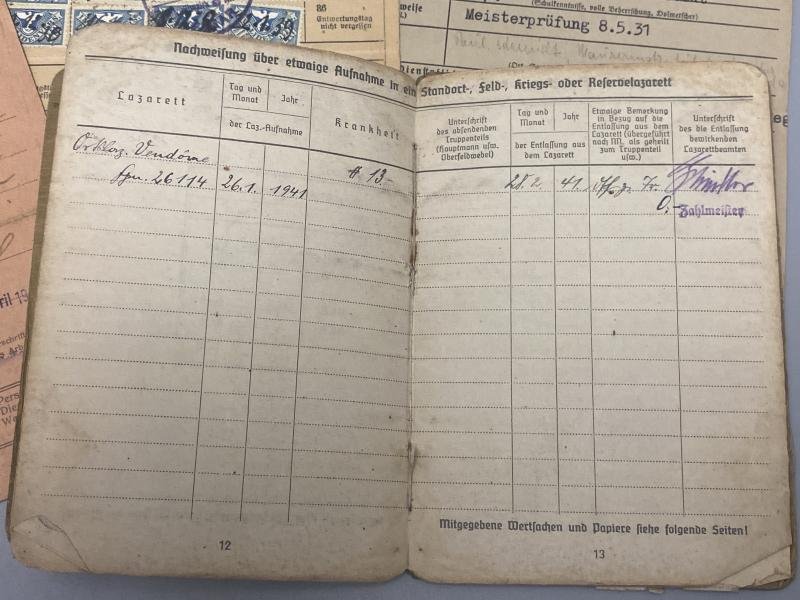 86
Entwertungstag
nicht vergessen
(Schulkenntnisse, volle Beherrschung, Dolmetscher)
weise
Meisterprüfung 8.5.31
Nachweisung über etwaige Aufnahme in ein Standort-, Feld-, Kriegs- oder Reservelazarett
Lazarett
Tag und
Monat
Jahr
der Laz.-Aufnahme
Krankheit
Ortslaz. Vendôme
26114 26.1. 1941
13.-
12
Unterschrift
des absendenden
Truppenteils
(Hauptmann usw.
Oberfeldwebel)
Tag und
Monat
Jahr
der Entlassung aus
dem Lazarett
Etwaige Bemerkung
in Bezug auf die
Entlassung aus dem
Lazarett (übergeführt
nach M. als geheilt
zum Truppenteil
usw.)
Unterschrift
des die Entlassung
bewirkenden
Lazarettbeamten
28.2. 41.
Zahlmeister
Mitgegebene Wertsachen und Papiere siehe folgende Seiten!
13
ril 19